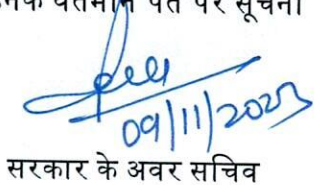 वर्तमान पते पर सूचना
09/11/2023
सरकार के अवर सचिव